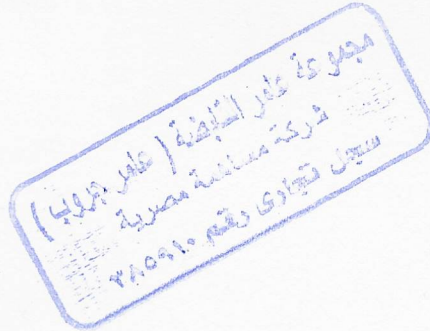 مجموعة عامر القابضة (عامر جروب)
شركة مساهمة مصرية
سجل تجارى رقم ٣٨٥٩١٠